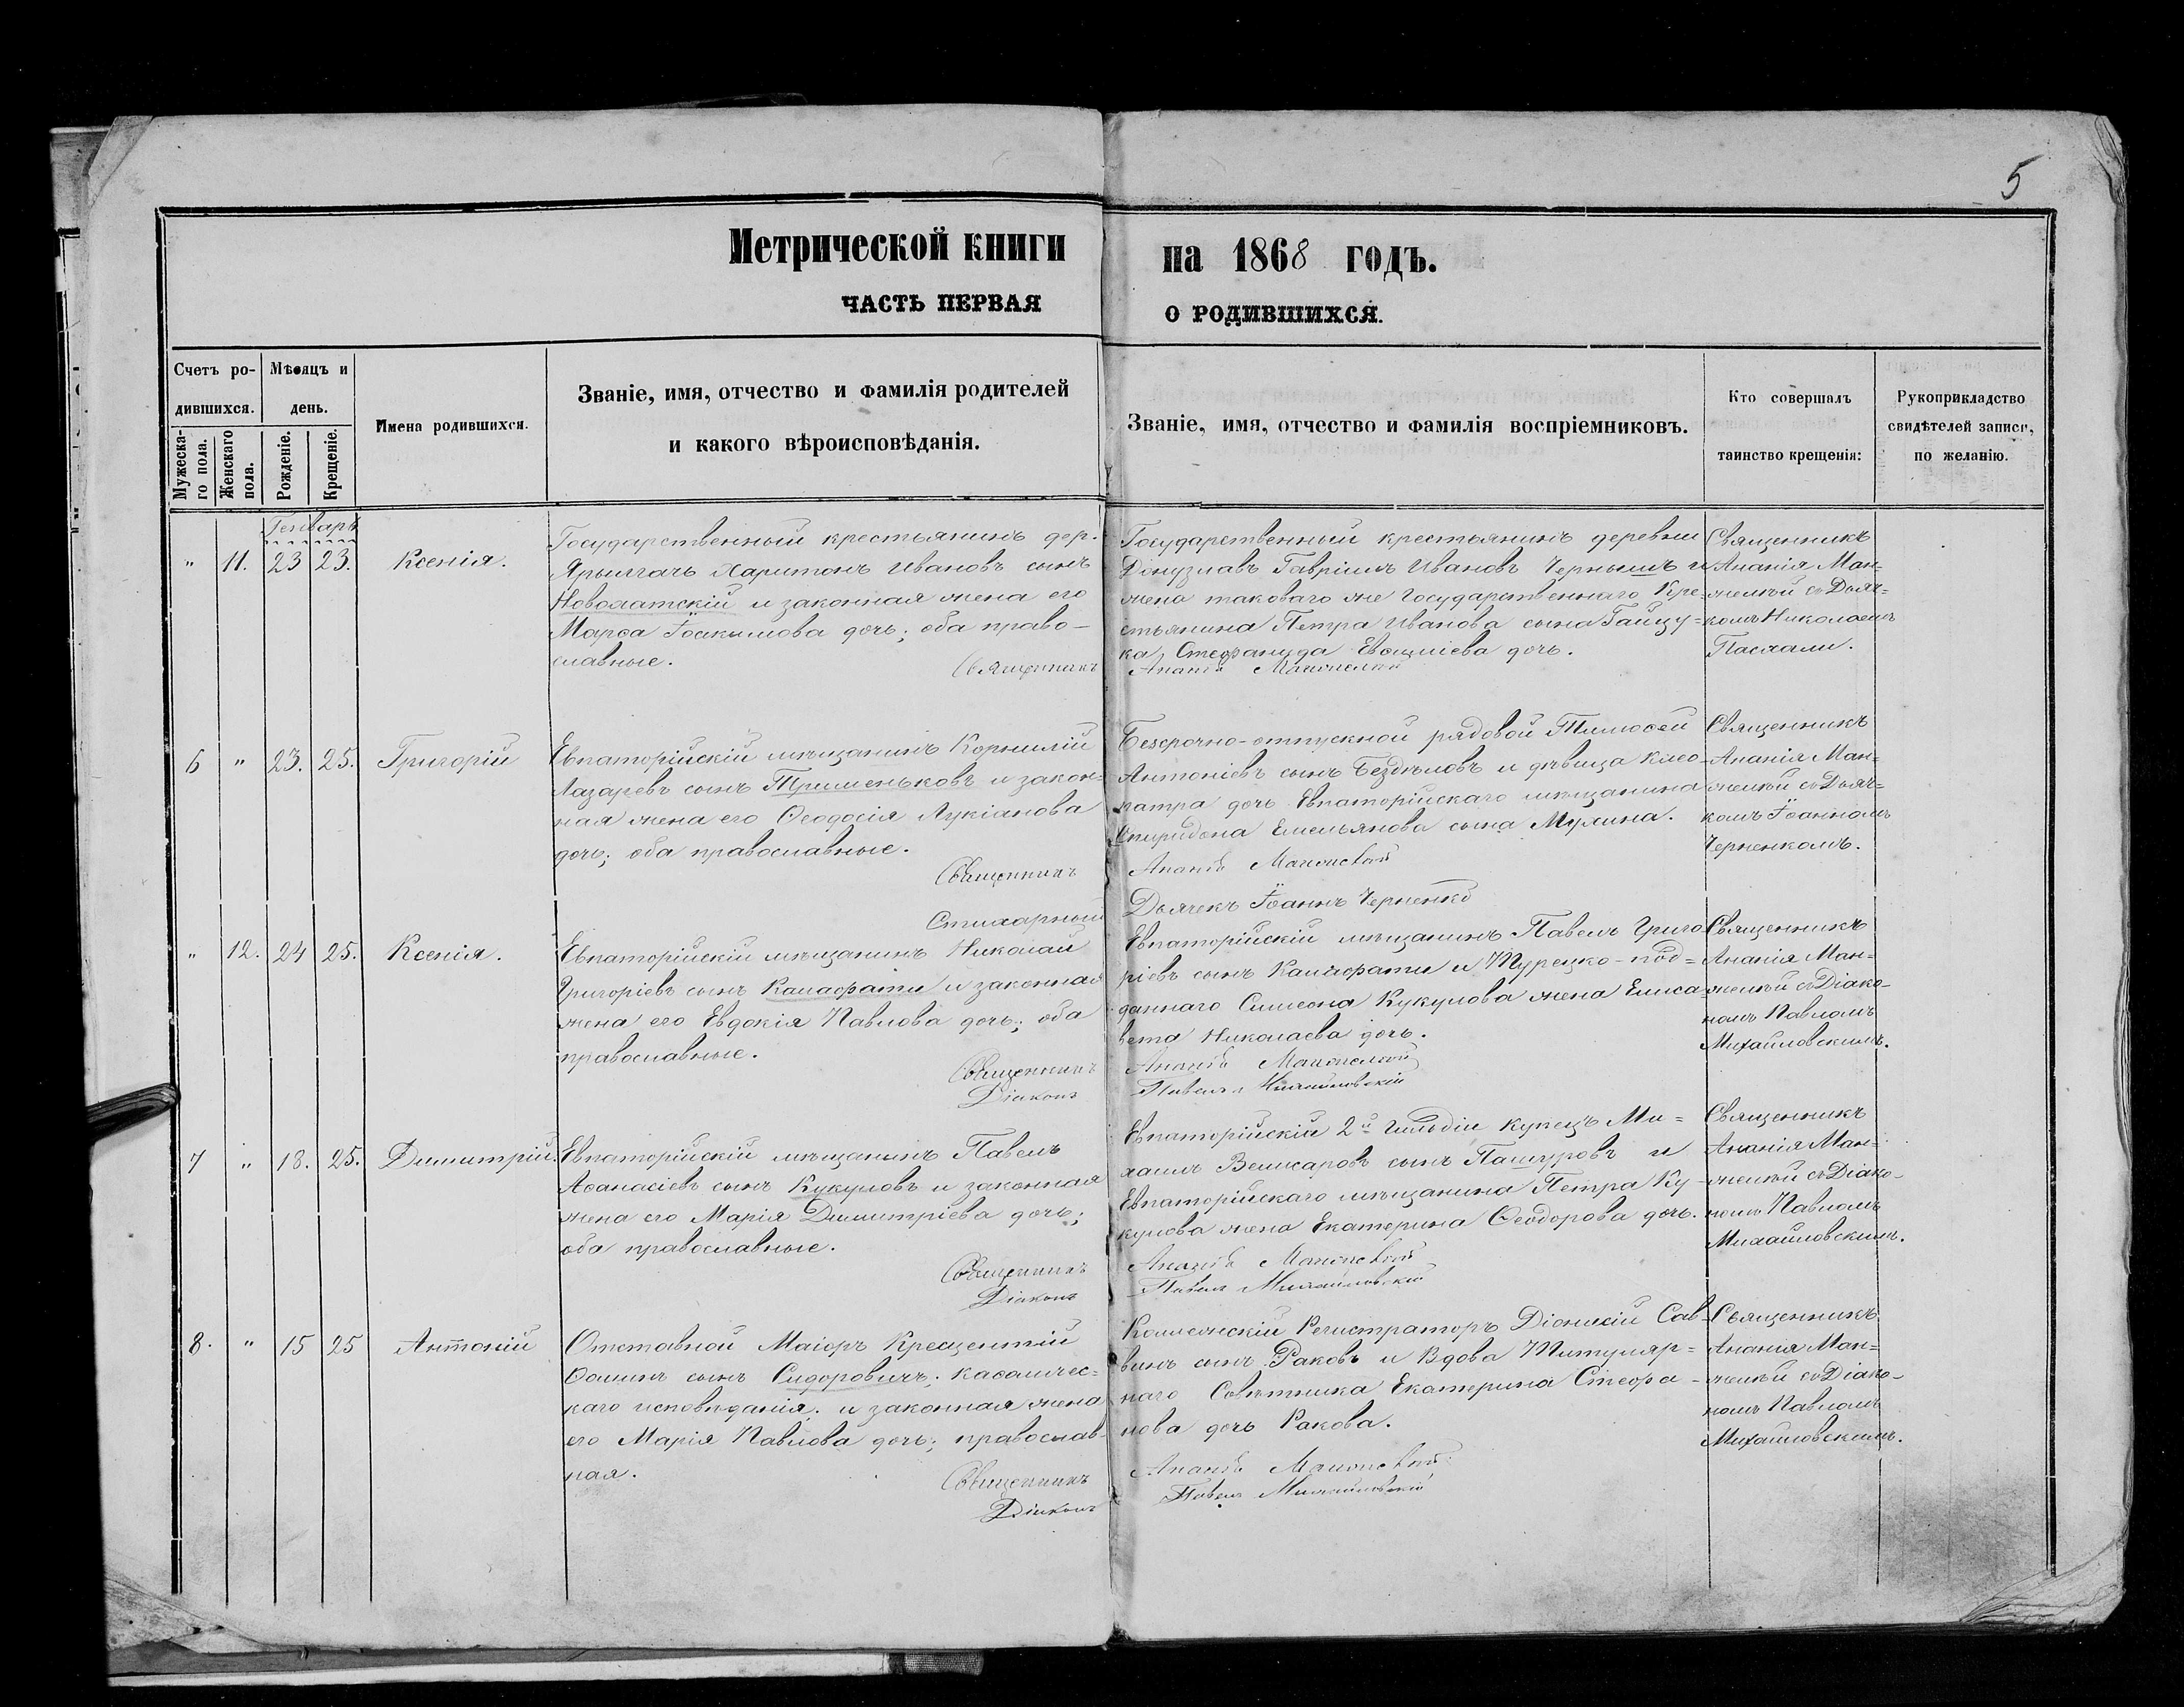 5
Метрической книги на 1868 годъ.
ЧАСТЬ ПЕРВАЯ О РОДИВШИХСЯ.
Счетъ ро-
дившихся.
Мужеска-
го пола.
Женскаго
пола.
Мѣсяцъ и
день.
Рожденіе.
Крещеніе.
Имена родившихся.
Званіе, имя, отчество и фамилія родителей
и какого вѣроисповѣданія.
Званіе, имя, отчество и фамилія воспріемниковъ.
Кто совершалъ
таинство крещенія:
Рукоприкладство
свидѣтелей записи,
по желанію.
Генварь
" 11. 23 23. Ксенія.
Государственный крестьянинъ дер.
Ярылгачъ Харитонъ Ивановъ сынъ
и законная жена его
Марѳа Іоакимова дочь; оба право-
славные.
Священникъ
Государственный крестьянинъ деревни
Донузлавъ Гавріилъ Ивановъ Чернышъ и
жена таковаго же Государственнаго Кре-
стьянина Петра Иванова сына Гайду-
ка Стефанида дочь.
Ананія
Священникъ
Ананія Ман-
желѣй съ Дьяч-
комъ Николаемъ
Пасхали.
6 " 23. 25. Григорій
Евпаторійскій мѣщанинъ Корнилій
Лазаревъ сынъ Трименьковъ и закон-
ная жена его Ѳеодосія Лукіанова
дочь; оба православные.
Священникъ
Стихарный
Безсрочно-отпускной рядовой Тимоѳей
Антоніевъ сынъ Бездѣловъ и дѣвица Клео-
патра дочь Евпаторійскаго мѣщанина
Спиридона Емельянова сына Мулина.
Ананія
Дьячекъ Іоаннъ Черненко
Священникъ
Ананія Ман-
желѣй съ Дьяч-
комъ Іоанномъ
Черненкомъ.
" 12. 24 25. Ксенія.
Евпаторійскій мѣщанинъ Николай
Григоріевъ сынъ Калафати и законная
жена его Евдокія Павлова дочь; оба
православные.
Священникъ
Діаконъ
Евпаторійскій мѣщанинъ Павелъ Григо-
ріевъ сынъ Калафати и Турецко-под-
даннаго Симеона Кукулова жена Елиса-
вета Николаева дочь.
Ананія
Павелъ Михайловскій
Священникъ
Ананія Ман-
желѣй съ Діако-
номъ Павломъ
Михайловскимъ.
7 " 18. 25. Димитрій.
Евпаторійскій мѣщанинъ Павелъ
Аѳанасіевъ сынъ Кукуловъ и законная
жена его Марія Димитріева дочь;
оба православные.
Священникъ
Діаконъ
Евпаторійскій 2й гильдіи купецъ Ми-
хаилъ сынъ Пашуровъ и
Евпаторійскаго мѣщанина Петра Ку-
кулова жена Екатерина Ѳеодорова дочь.
Ананія
Павелъ Михайловскій
Священникъ
Ананія Ман-
желѣй съ Діако-
номъ Павломъ
Михайловскимъ.
8. " 15 25 Антоній
Отставной Маіоръ Крещентій
Ѳоминъ сынъ Сидоровичъ; каѳоличес-
каго исповѣданія; и законная жена
его Марія Павлова дочь; православ-
ная.
Священникъ
Діаконъ
Коллежскій Регистраторъ Діонисій Сав-
винъ сынъ Раковъ и Вдова Титуляр-
наго Совѣтника Екатерина Стефа-
нова дочь Ракова.
Ананія
Павелъ Михайловскій
Священникъ
Ананія Ман-
желѣй съ Діако-
номъ Павломъ
Михайловскимъ.